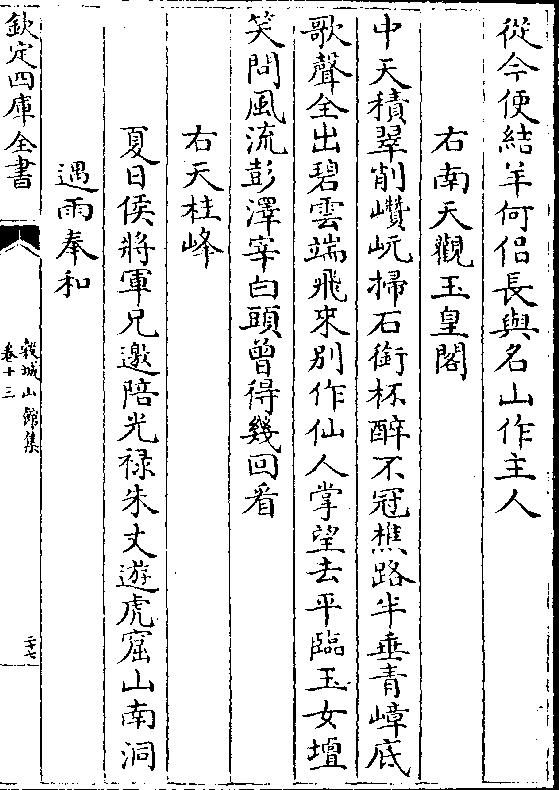 從今便結羊何侣長與名山作主人
右南天觀玉皇閣
中天積翠削巑岏掃石銜杯醉不冠樵路半垂青嶂底
歌聲全出碧雲端飛來别作仙人掌望去平臨玉女壇
笑問風流彭澤宰白頭曾得幾回看
右天柱峰
夏日侯將軍兄邀陪光禄朱丈遊虎窟山南洞
遇雨奉和
欽定四庫全書
穀城山館集
卷十三
二十七